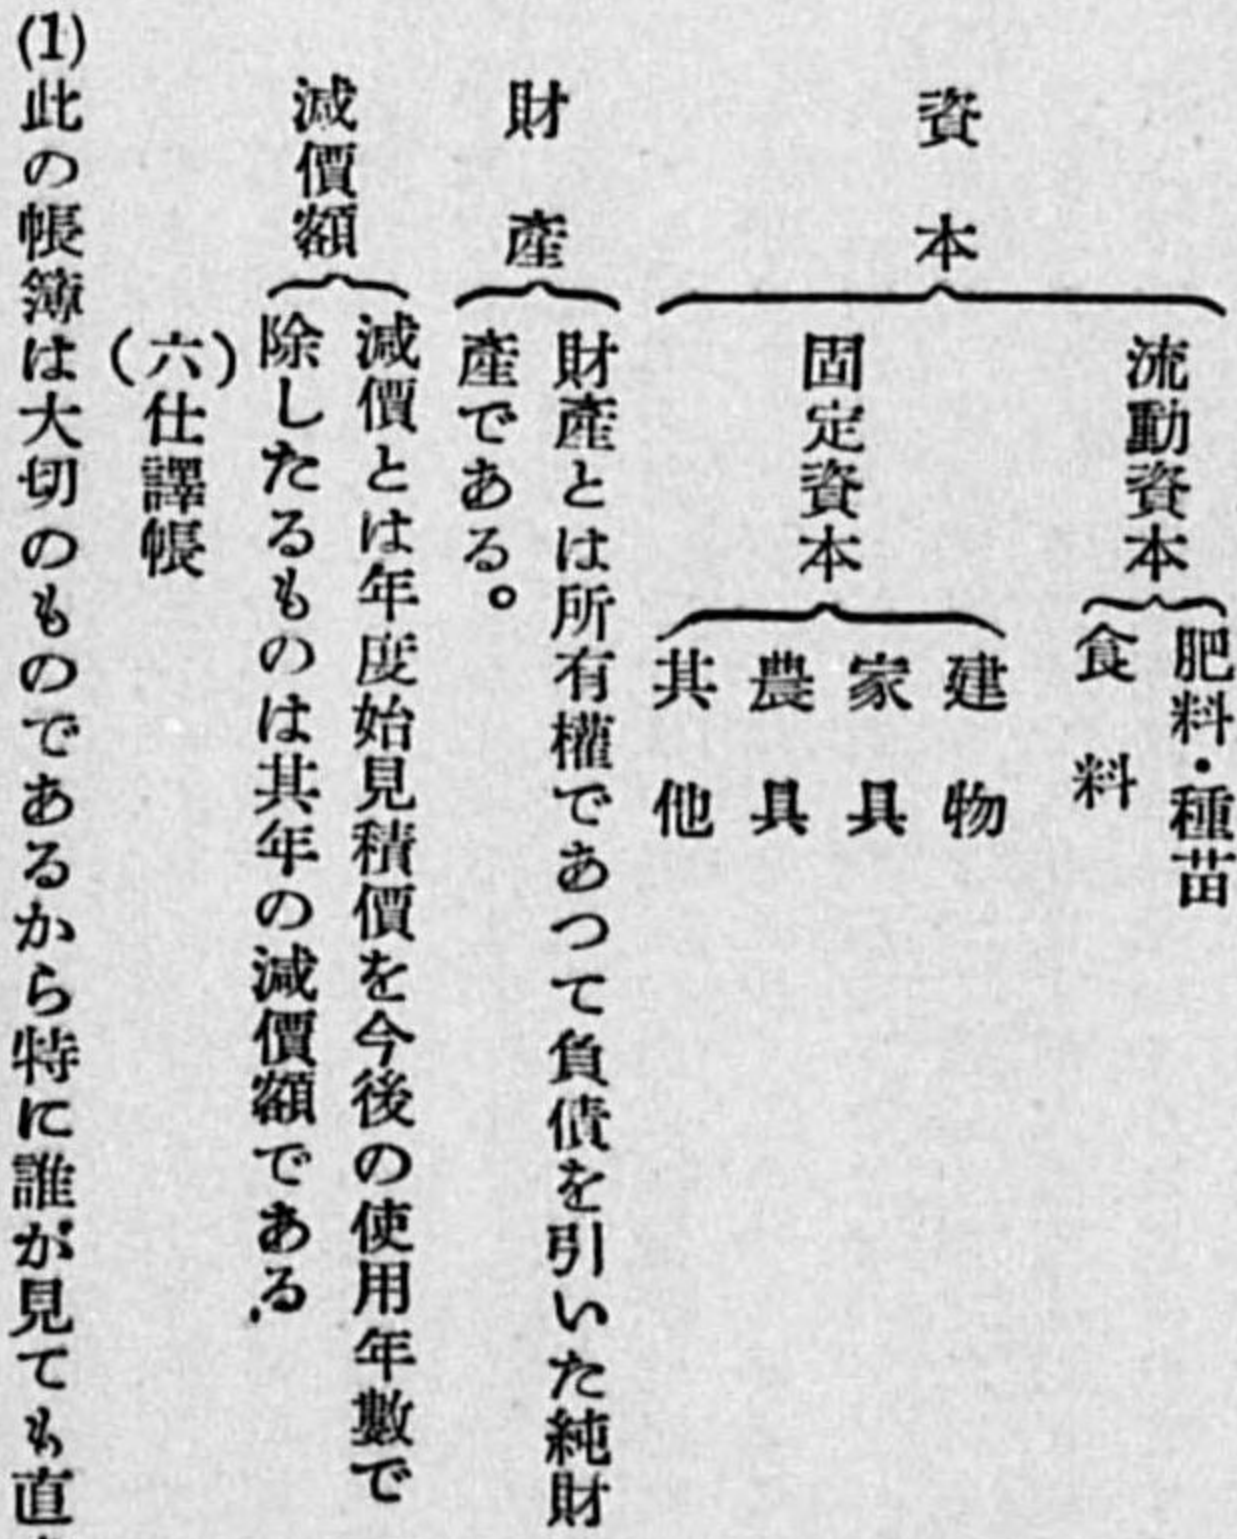 資本
流動資本
肥料・種苗
食料
固定資本
建物
家具
農具
其他
財産
財産とは所有權であつて負債を引いた純財
産である。
減價額
減價とは年度始見積價を今後の使用年數で
除したるものは其年の減價額である
(六)仕譯帳
(1)此の帳簿は大切のものであるから特に誰が見ても直